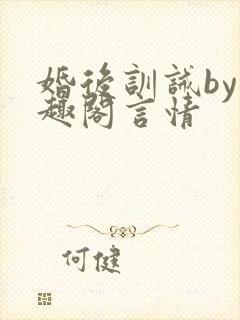 婚後訓誡by
趣閣言情
何健